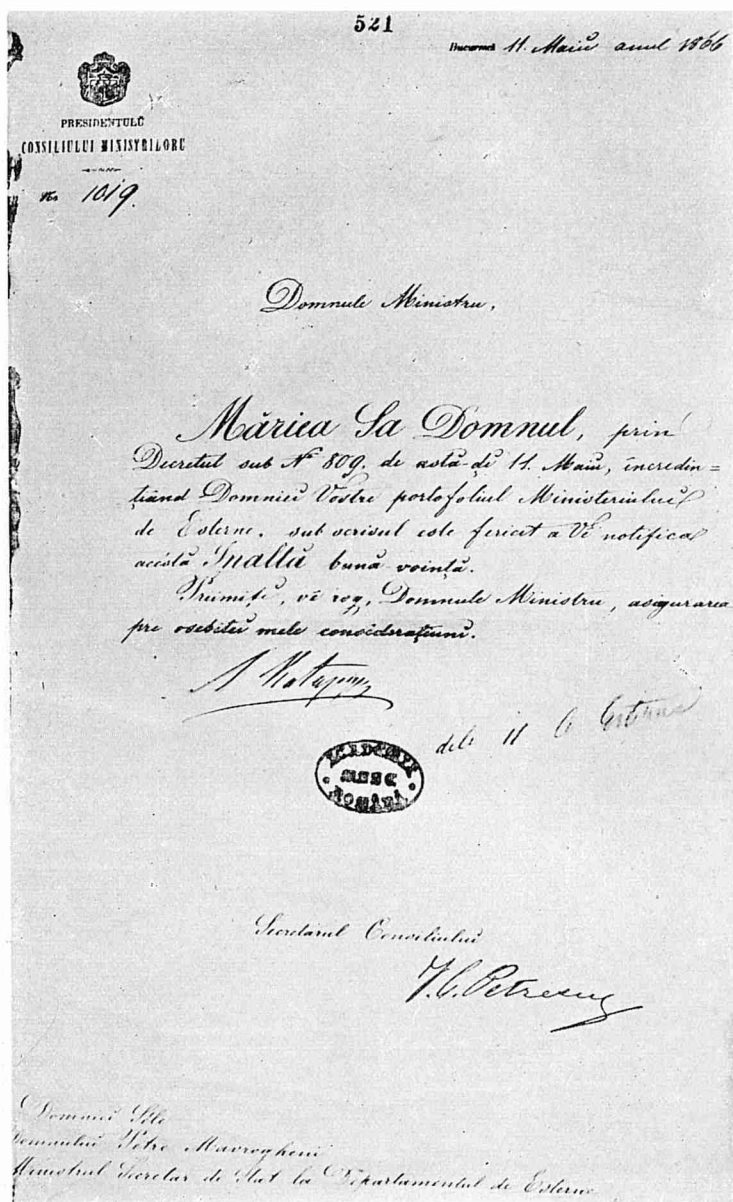 521
Bucuresci 11. Maiu anul 1866
PRESIDENTULŬ
CONSILIULUI MINISTRILORU
No 1019.
Domnule Ministru,
Măriea Sa Domnul, prin
Decretul sub No 809. de astă-di 11. Maiu, incredin=
țiand Domniei Vostre portofoliul Ministeriului
de Esterne, sub scrisul este fericit a Vĕ notifica
acéstă Inaltă bună-voință.
Priimiți, vĕ rog, Domnule Ministru, asigurarea
pre osebitei mele considerațiuni.
ACADEMIA
ROMÂNĂ
Secretarul Consiliului
I. C. Petrescu
Domniei Sĕle
Domnului Petre Mavrogheni
Ministrul Secretar de Stat la Departamentul de Esterne